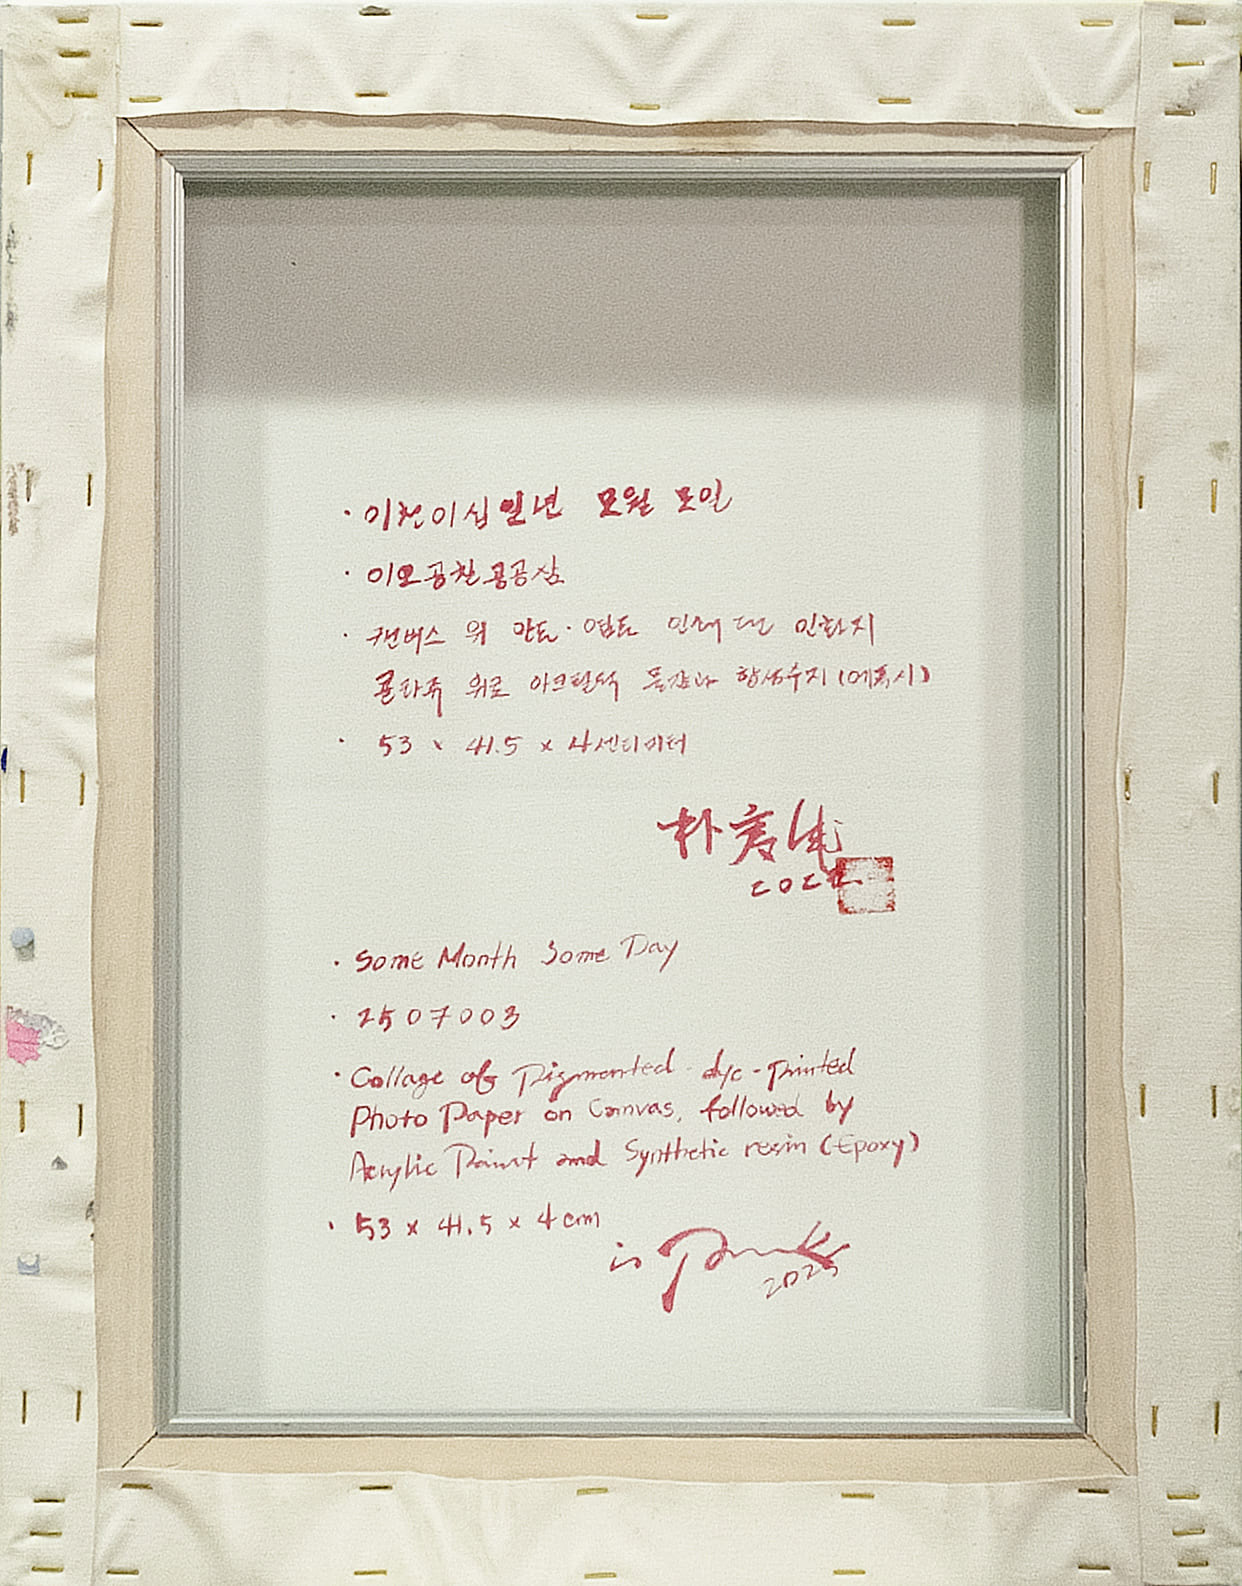 · 이천이십일년 모월 모일
· 이오공칠공공삼
· 캔버스 위 안료·염료 인쇄 된 인화지
콜라쥬 위로 아크릴릭 물감과 합성수지(에폭시)
· 53 x 41.5 x 4센티미터
朴
· Some Month Some Day
· 2507003
· Collage of Pigmented dye-printed
Photo Paper on Canvas, followed by
Acrylic Paint and Synthetic resin (Epoxy)
· 53 x 41.5 x 4cm
is Park
2025